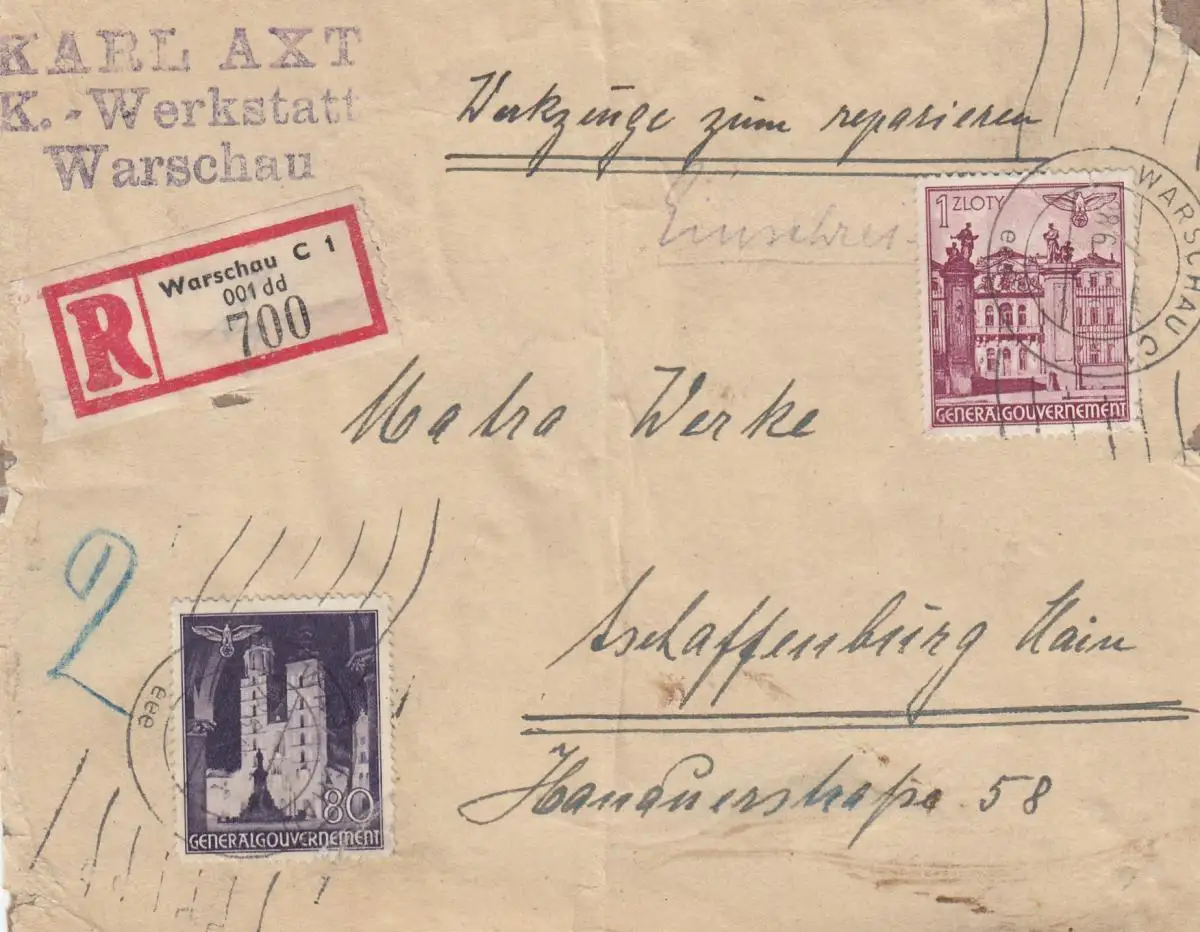 KARL AXT
K.-Werkstatt
Warschau
Werkzeuge zum reparieren
Einschrei
R
Warschau C 1
001 dd
700
1 ZLOTY
GENERALGOUVERNEMENT
WARSCHAU C1
Matra Werke
2
Aschaffenburg Main
Hanauerstraße 58
eee
80
GENERALGOUVERNEMENT